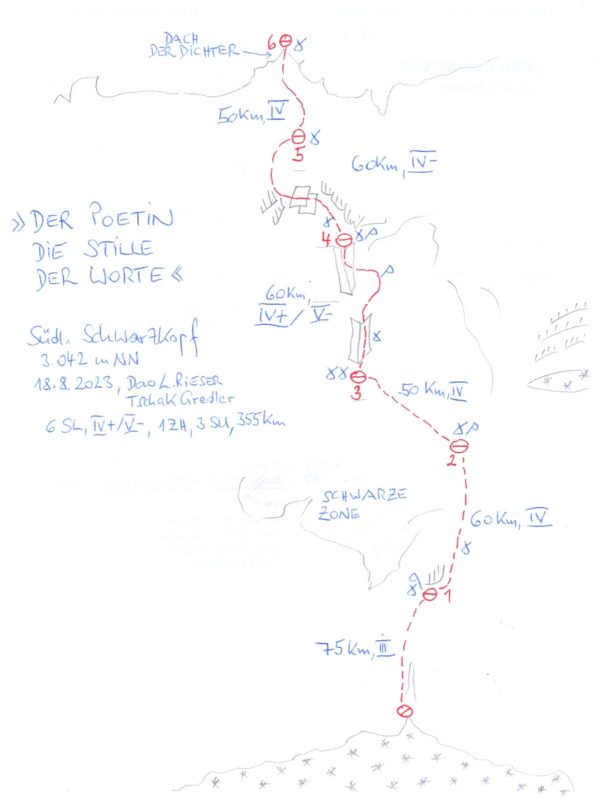 DACH
DER DICHTER
6
50Km, IV
5
60Km, IV-
4
» DER POETIN
DIE STILLE
DER WORTE «
60Km,
IV+/V-
Südl. Schwarzkopf
3.042 mNN
18.8.2023, Dao L. Rieser
Tschak Gredler
6 SL, IV+/V-, 1ZH, 3 SU, 355Km
3
50 Km, IV
2
SCHWARZE
ZONE
60Km, IV
1
75Km, III